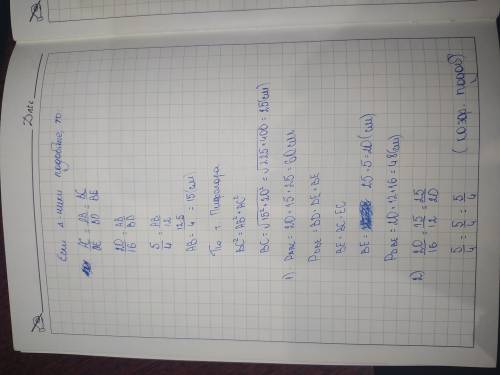 Date
Если Δ-ники подобные, то
AC/DE = AB/BD = BC/BE
20/16 = AB/BD
5/4 = AB/12
AB = 12·5/4 = 15(см)
По т Пифагора
BC² = AB² + AC²
BC = √15² + 20² = √225 + 400 = 25(см)
1) PABC = 20 + 15 + 25 = 60 см
PDBE = BD + DE + BE
BE = BC - EC
BE = 25 - 5 = 20(см)
PDBE = 20 + 12 + 16 = 48(см)
2) 20/16 = 15/12 = 25/20
5/4 = 5/4 = 5/4 подоб)